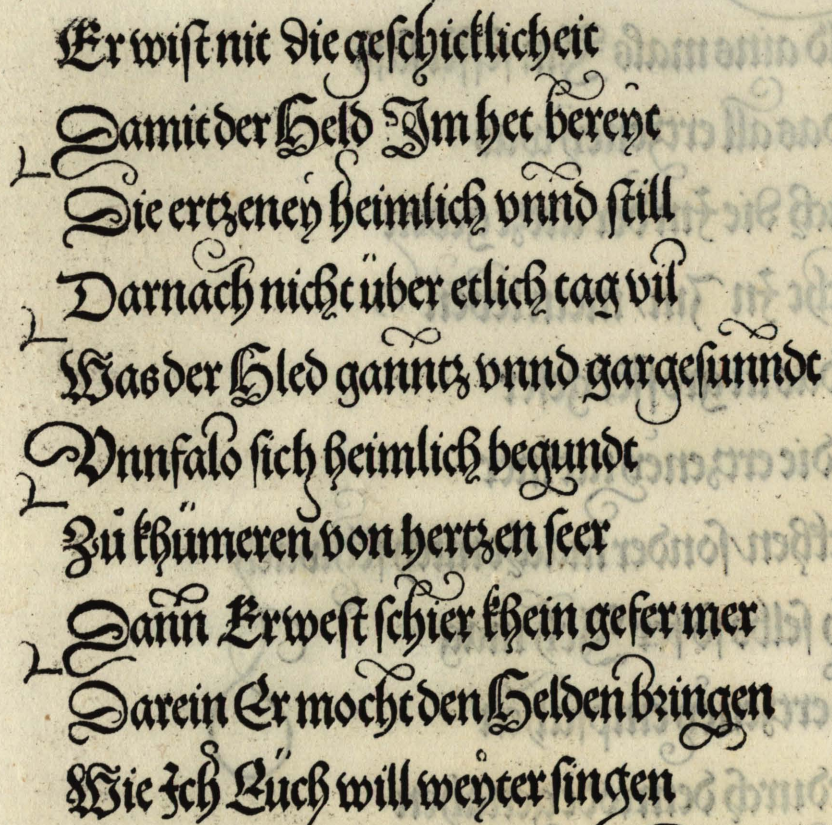 Er wist nit die geschicklicheit
Damit der Held Im het bereyt
Die ertzeney heimlich vnnd still
Darnach nicht über etlich tag vil
Was der Hled ganntz vnnd gar gesunndt
Vnnfalo sich heimlich begundt
Zů khümeren von hertzen seer
Dann Er west schier khein gefer mer
Darein Er mocht den Helden bringen
Wie Ich Eüch will weyter singen